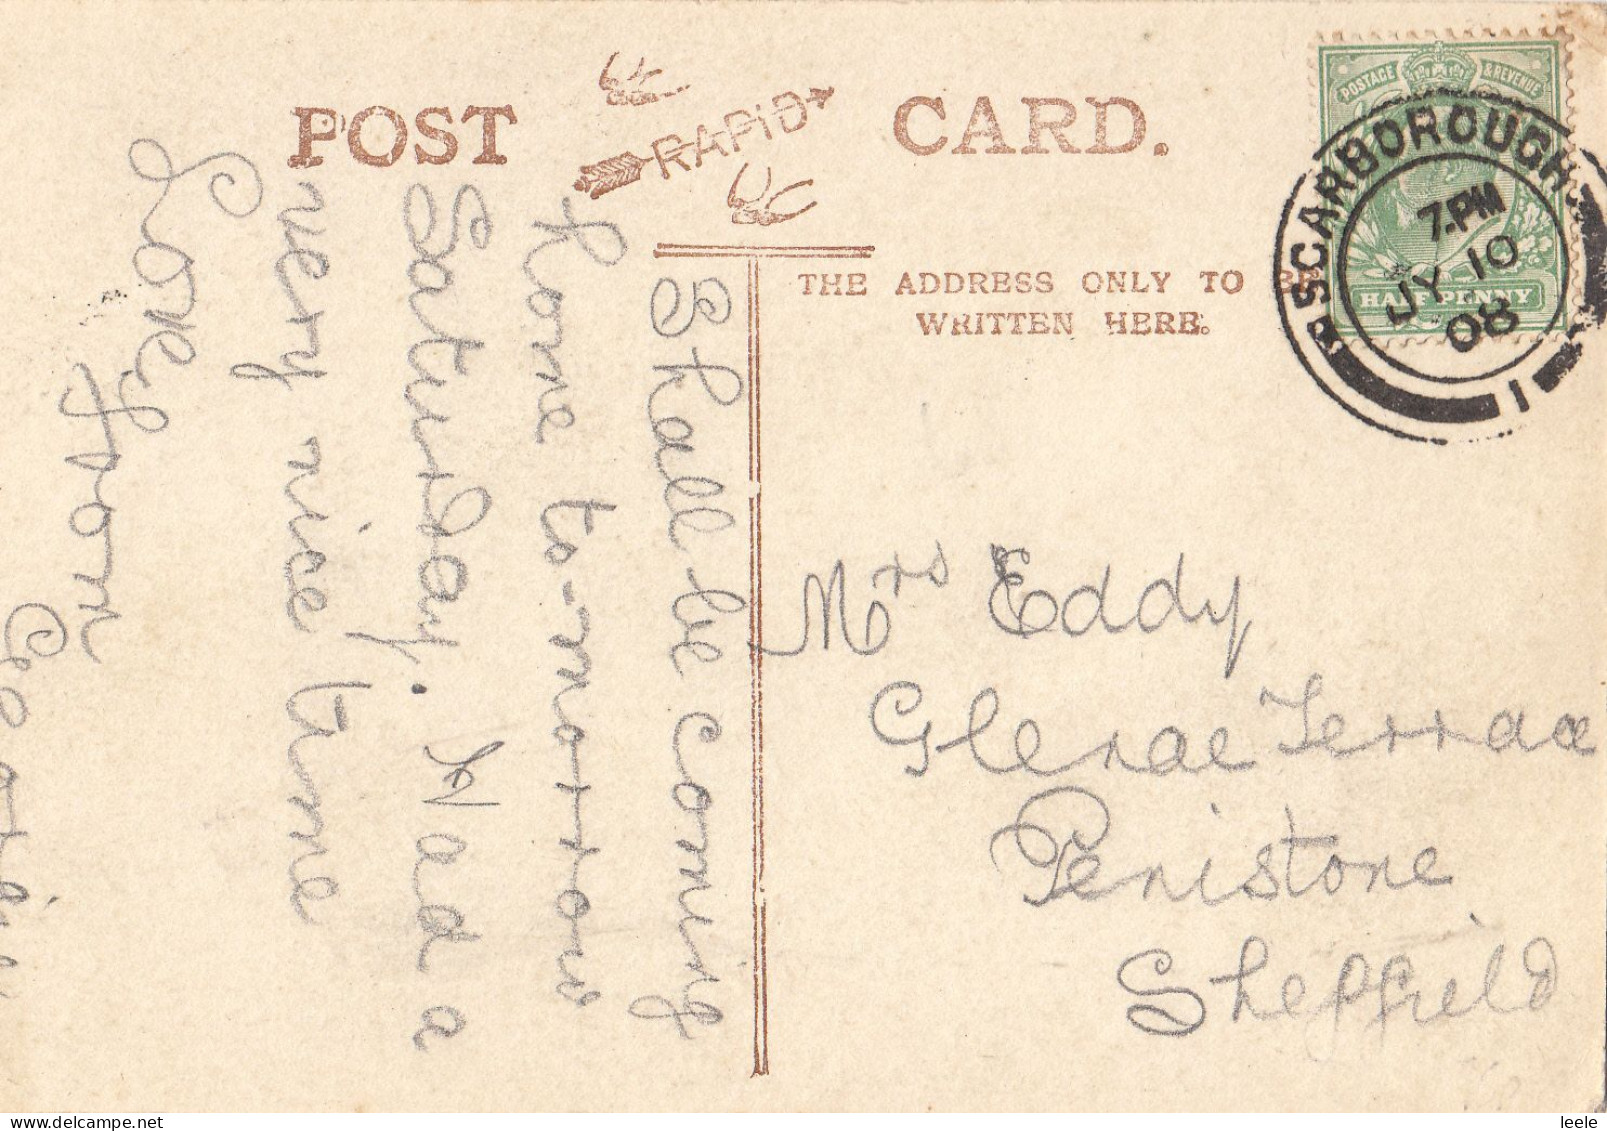 POST RAPID CARD.
THE ADDRESS ONLY TO BE
WRITTEN HERE.
POSTAGE & REVENUE
HALF PENNY
SCARBOROUGH
7-PM
JY 10
08
1
Shall be coming
home to-morrow
Saturday. Had a
very nice time
Love
from
Mrs Eddy
Glenae Terrace
Penistone
Sheffield
leele